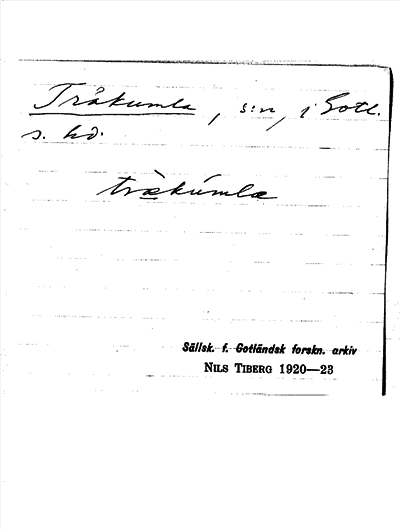 Tråkumla, s:n, i Gotl.
s. hd.
träkúmla
Sällsk. f. Gotländsk forskn. arkiv
NILS TIBERG 1920—23